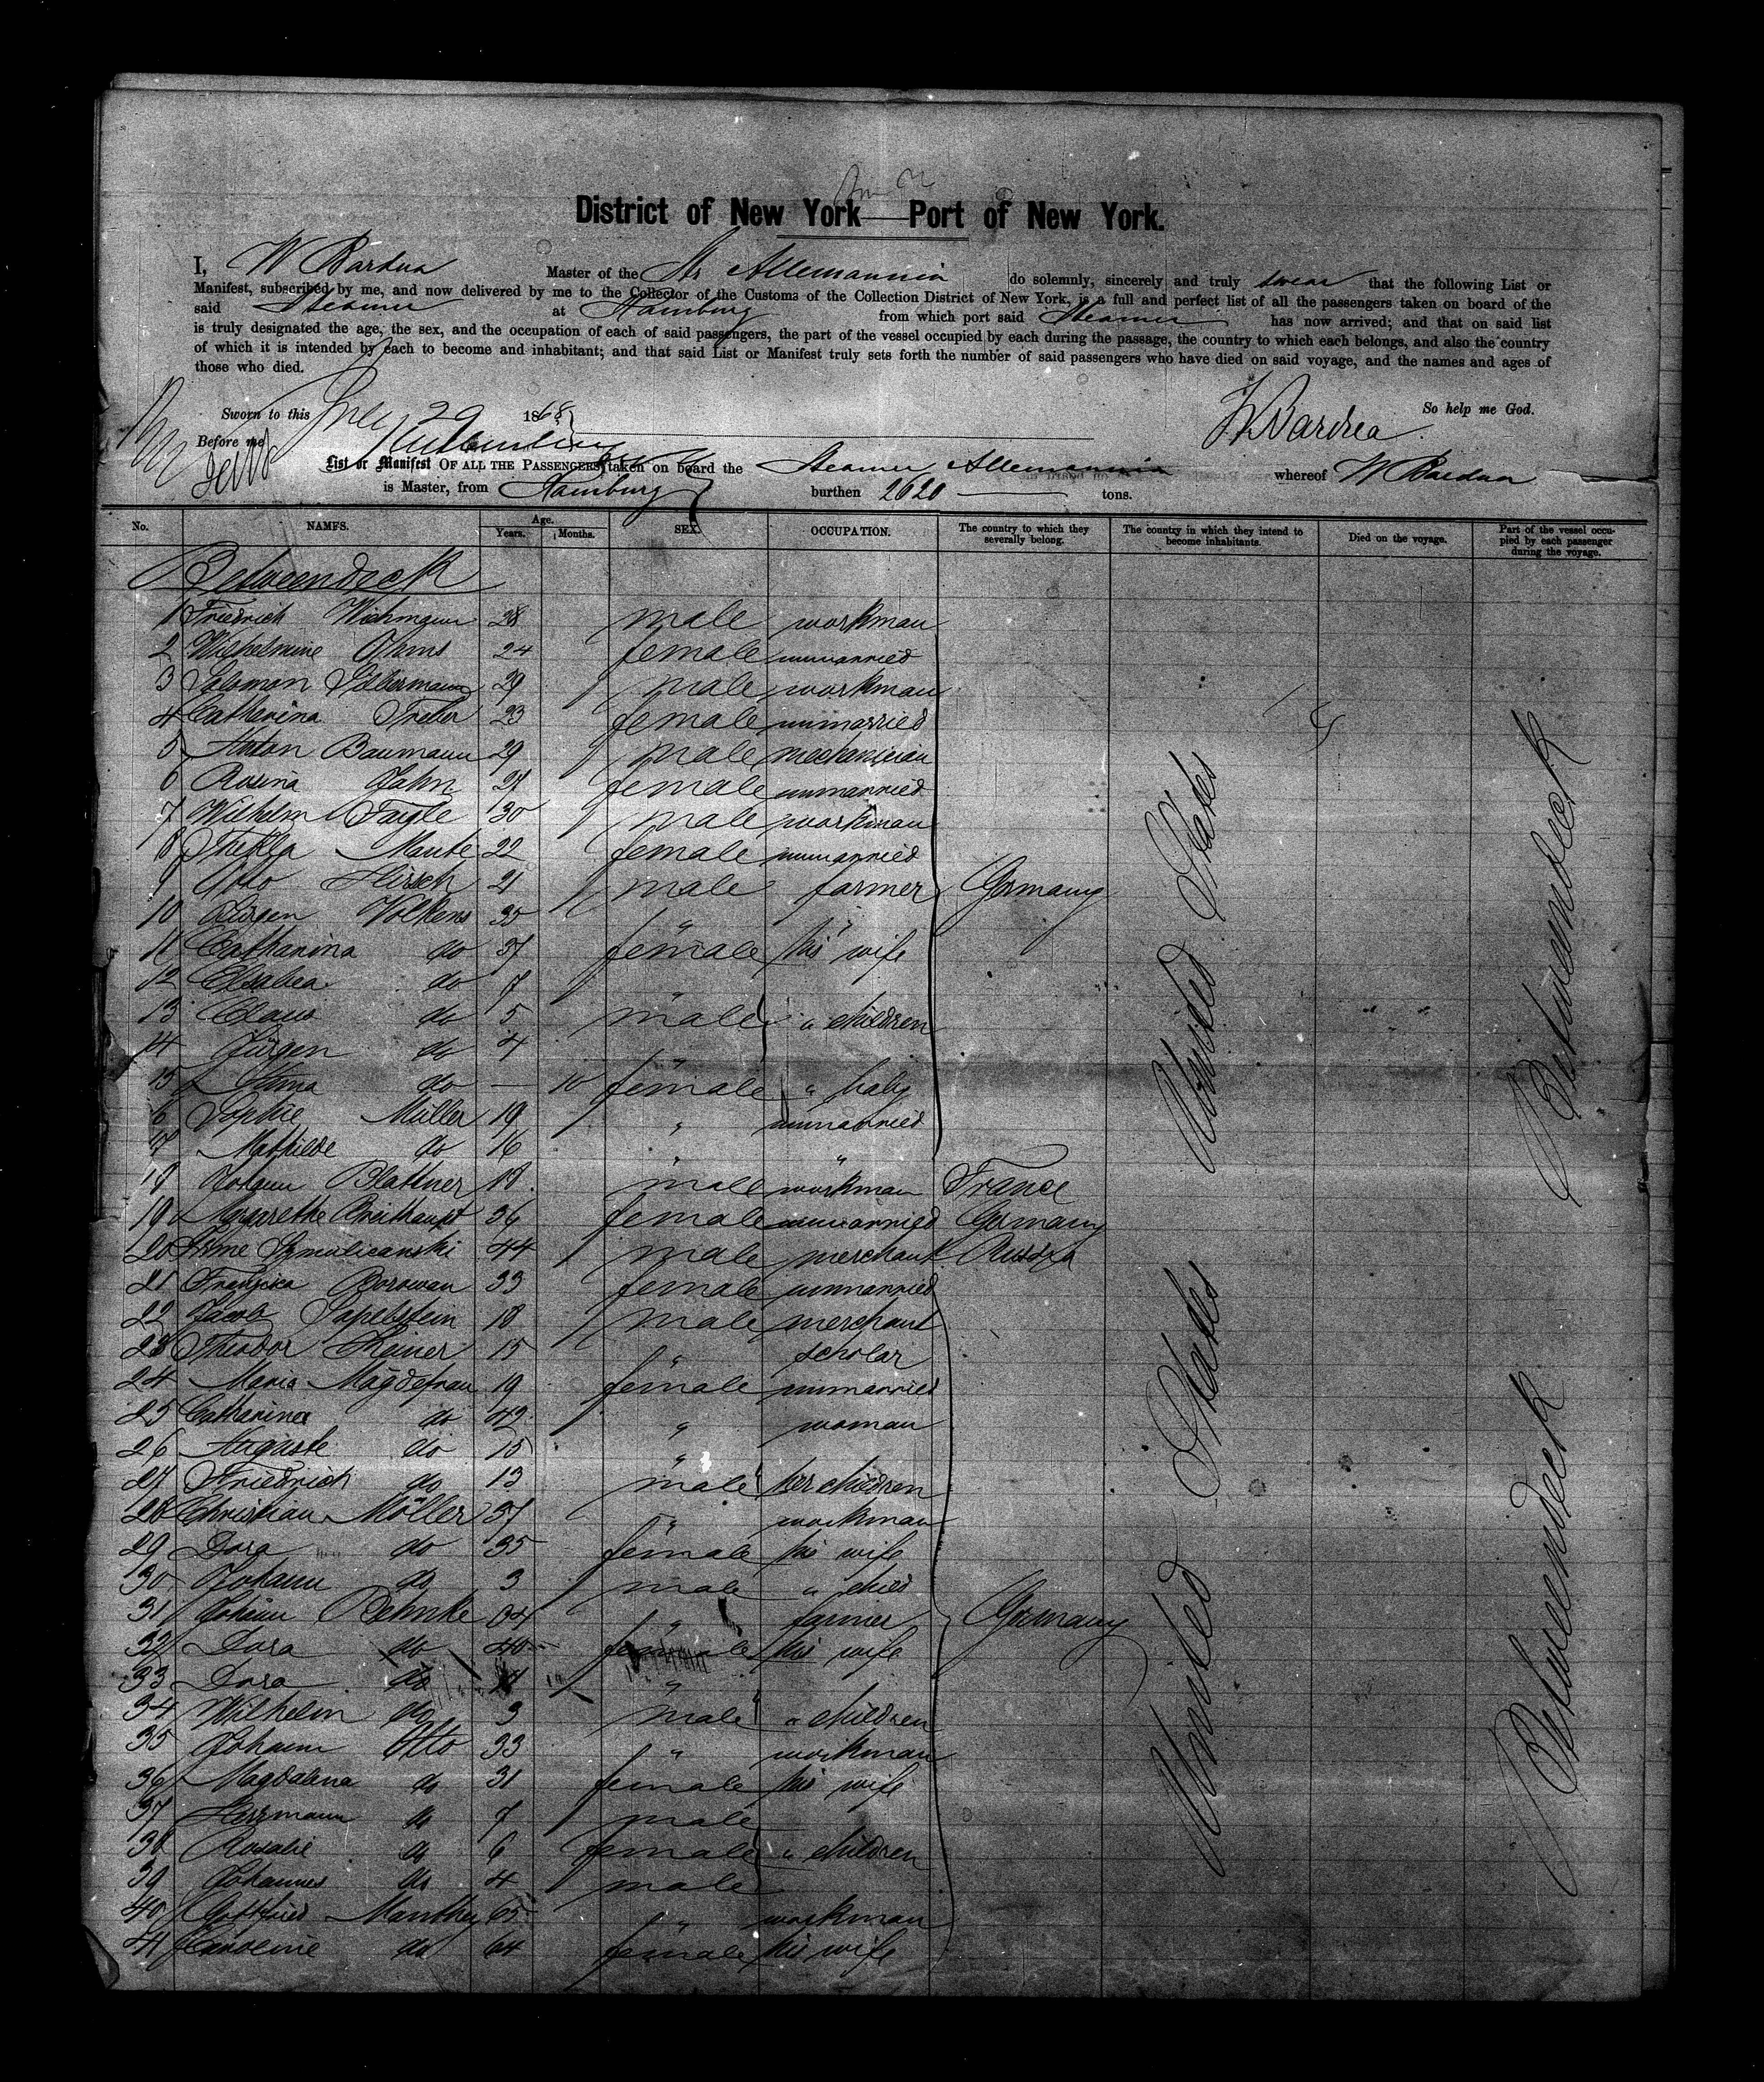 District of New York — Port of New York.
I, W Bardua Master of the Str Allemannia do solemnly, sincerely and truly swear that the following List or
Manifest, subscribed by me, and now delivered by me to the Collector of the Customs of the Collection District of New York, is a full and perfect list of all the passengers taken on board of the
said Steamer at Hamburg from which port said Steamer has now arrived; and that on said list
is truly designated the age, the sex, and the occupation of each of said passengers, the part of the vessel occupied by each during the passage, the country to which each belongs, and also the country
of which it is intended by each to become and inhabitant; and that said List or Manifest truly sets forth the number of said passengers who have died on said voyage, and the names and ages of
those who died.
Sworn to this 29 1868
So help me God.
W Bardua
Before me
List or Manifest OF ALL THE PASSENGERS taken on board the Steamer Allemannia whereof W Bardua
is Master, from Hamburg burthen 2620 tons.
No. NAMES. Age. Years. Months. SEX. OCCUPATION. The country to which they severally belong. The country in which they intend to become inhabitants. Died on the voyage. Part of the vessel occupied by each passenger during the voyage.
Betweendeck
1 Friedrich Wichmann 28 male workman
2 Wilhelmine Ohms 24 female unmarried
3 Salomon Silbermann 29 male workman
4 Catharina Treber 23 female unmarried
5 Anton Baumann 29 male mechanician
6 Rosina Jahn 24 female unmarried
7 Wilhelm Faigle 30 male workman
8 Thekla Maute 22 female unmarried
9 Otto Hirsch 21 male farmer Germany
10 Jürgen Volkens 35 " "
11 Catharina do 37 female his wife
12 Elsabea do 7 "
13 Claus do 5 male " children
14 Jürgen do 4 "
15 Anna do — 10 female " baby
16 Sophie Müller 19 " unmarried
17 Mathilde do 16 " "
18 Johann Blattner 18 male workman France
19 Margarethe Breithaupt 36 female unmarried Germany
20 Szmulicanski 44 male merchant Russia
21 Franziska Borowan 33 female unmarried
22 Jacob Sapelstein 18 male merchant
23 Theodor Kleiner 15 " scholar
24 Maria Magdefrau 19 female unmarried
25 Catharina do 42 " woman
26 Auguste do 15 "
27 Friedrich do 13 male her children
28 Christian Möller 37 " workman
29 Dora do 35 female his wife
30 Johann do 3 male " child
31 Johann Behnke 34 " farmer Germany
32 Dora do 40 female his wife
33 Dora do "
34 Wilhelm do 3 male " children
35 Johann Otto 33 " workman
36 Magdalena do 31 female his wife
37 Herrmann do 7 male
38 Rosalie do 6 female " children
39 Johannes do 4 male
40 Gottfried Manthey 65 " workman
41 Caroline do 64 female his wife
United States
United States
Betweendeck
Betweendeck